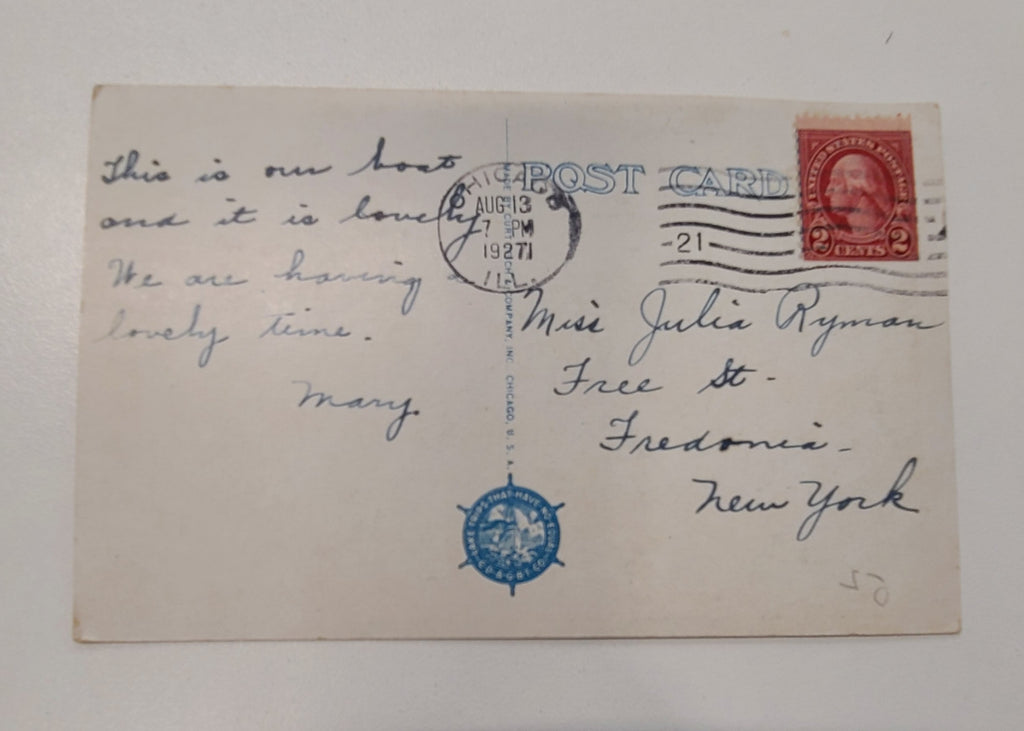 This is our boat
and it is lovely
We are having
lovely time.
Mary.
POST CARD
CHICAGO
AUG 13
7 PM
1927
ILL.
21
UNITED STATES POSTAGE
2 CENTS 2
Miss Julia Ryman
Free St.
Fredonia.
New York
COMPANY, INC. CHICAGO, U. S. A.
LAKE TRIPS THAT HAVE NO EQUAL
52